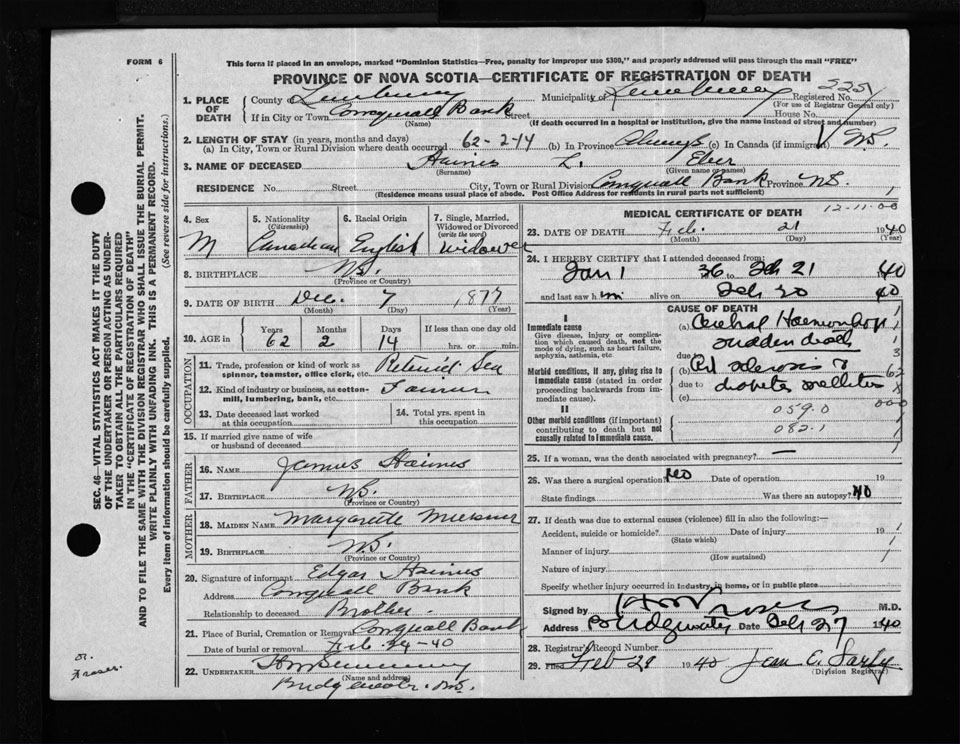 FORM 6
This form if placed in an envelope, marked "Dominion Statistics—Free, penalty for improper use $300," and properly addressed will pass through the mail "FREE"
PROVINCE OF NOVA SCOTIA—CERTIFICATE OF REGISTRATION OF DEATH
SEC. 46—VITAL STATISTICS ACT MAKES IT THE DUTY
OF THE UNDERTAKER OR PERSON ACTING AS UNDER-
TAKER TO OBTAIN ALL THE PARTICULARS REQUIRED
IN THE "CERTIFICATE OF REGISTRATION OF DEATH"
AND TO FILE THE SAME WITH THE DIVISION REGISTRAR WHO SHALL ISSUE THE BURIAL PERMIT.
WRITE PLAINLY WITH UNFADING INK. THIS IS A PERMANENT RECORD.
Every item of information should be carefully supplied. (See reverse side for instructions.)
1. PLACE OF DEATH
County of Lunenburg Municipality of Lunenburg Registered No. 2251
(For use of Registrar General only)
If in City or Town Conquall Bank Street House No.
(Name) (If death occurred in a hospital or institution, give the name instead of street and number)
2. LENGTH OF STAY (in years, months and days)
(a) In City, Town or Rural Division where death occurred 62-2-14 (b) In Province Always (c) In Canada (if immigrant) N.S.
3. NAME OF DECEASED Haines L. Eber
(Surname) (Given name or names)
RESIDENCE No. Street City, Town or Rural Division Conquall Bank Province N.S.
(Residence means usual place of abode. Post Office Address for residents in rural parts not sufficient)
4. Sex M
5. Nationality (Citizenship) Canadian
6. Racial Origin English
7. Single, Married, Widowed or Divorced (write the word) Widower
8. BIRTHPLACE N.S.
(Province or Country)
9. DATE OF BIRTH Dec. 7, 1877
(Month) (Day) (Year)
10. AGE in Years Months Days If less than one day old
62 2 14 hrs. or min.
OCCUPATION
11. Trade, profession or kind of work as
spinner, teamster, office clerk, etc. Retired Sea
12. Kind of industry or business, as cotton-
mill, lumbering, bank, etc.
13. Date deceased last worked
at this occupation
14. Total yrs. spent in
this occupation
15. If married give name of wife
or husband of deceased
FATHER
16. NAME James Haines
17. BIRTHPLACE N.S.
(Province or Country)
MOTHER
18. MAIDEN NAME Margarette Meisner
19. BIRTHPLACE N.S.
(Province or Country)
20. Signature of informant Edgar Haines
Address Conquall Bank
Relationship to deceased Brother.
21. Place of Burial, Cremation or Removal Conquall Bank
Date of burial or removal Feb. 24-40
22. UNDERTAKER
(Name and address)
Bridgewater. N.S.
Dr.
Fraser.
MEDICAL CERTIFICATE OF DEATH
12-11-00
23. DATE OF DEATH Feb. 21 1940
(Month) (Day) (Year)
24. I HEREBY CERTIFY that I attended deceased from:
Jan 1 36 to Feb 21 40
and last saw him alive on Feb 20 40
CAUSE OF DEATH
I
Immediate cause
Give disease, injury or complica-
tion which caused death, not the
mode of dying, such as heart failure,
asphyxia, asthenia, etc
(a) Cerebral Haemorrhage
sudden death
due to
Morbid conditions, if any, giving rise to
immediate cause (stated in order
proceeding backwards from im-
mediate cause).
(b) Art sclerosis &
due to diabetes mellitus
(c)
II
Other morbid conditions (if important)
contributing to death but not
causally related to immediate cause.
059.0
082.1
25. If a woman, was the death associated with pregnancy? —
26. Was there a surgical operation? No Date of operation 19
State findings Was there an autopsy? No
27. If death was due to external causes (violence) fill in also the following:—
Accident, suicide or homicide? Date of injury 19
(State which)
Manner of injury
(How sustained)
Nature of injury
Specify whether injury occurred in industry, in home, or in public place
Signed by M.D.
Address Bridgewater Date Feb 27 1940
28. Registrar's Record Number
29. Filed Feb 29 1940 Jean E.
(Division Registrar)